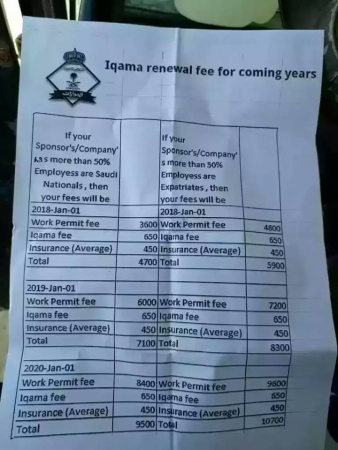 Iqama renewal fee for coming years
If your
Sponsor's/Company'
s more than 50%
Employess are Saudi
Nationals , then
your fees will be
If your
Sponsor's/Company'
s more than 50%
Employess are
Expatriates , then
your fees will be
2018-Jan-01 2018-Jan-01
Work Permit fee 3600 Work Permit fee 4800
Iqama fee 650 Iqama fee 650
Insurance (Average) 450 Insurance (Average) 450
Total 4700 Total 5900
2019-Jan-01
Work Permit fee 6000 Work Permit fee 7200
Iqama fee 650 Iqama fee 650
Insurance (Average) 450 Insurance (Average) 450
Total 7100 Total 8300
2020-Jan-01
Work Permit fee 8400 Work Permit fee 9600
Iqama fee 650 Iqama fee 650
Insurance (Average) 450 Insurance (Average) 450
Total 9500 Total 10700